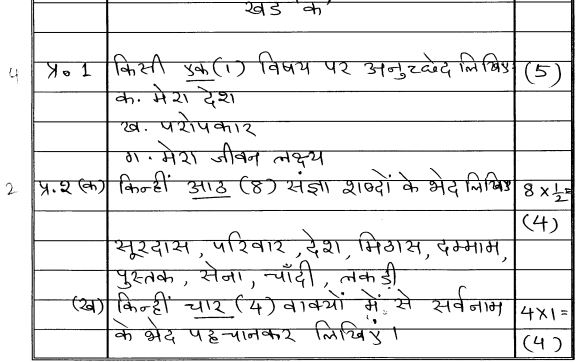 खंड 'क'
4 प्र. 1 किसी एक (1) विषय पर अनुच्छेद लिखिए (5)
क. मेरा देश
ख. परोपकार
ग. मेरा जीवन लक्ष्य
2 प्र.२ (क) किन्हीं आठ (8) संज्ञा शब्दों के भेद लिखिए 8 × ½ =
(4)
सूरदास, परिवार, देश, मिठास, दम्माम,
पुस्तक, सेना, चाँदी, लकड़ी
(ख) किन्हीं चार (4) वाक्यों में से सर्वनाम 4×1=
के भेद पहचानकर लिखिएं। (4)